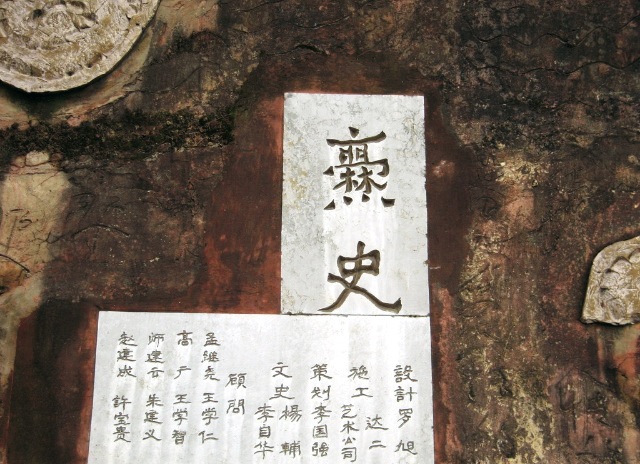 爨史
設計 罗旭
达二
施工 艺术公司
策划 李国强
文史 楊輔
李自华
顾問
孟继尧 王学仁
高广 王学智
师建 朱建义
赵建成 許宝贵